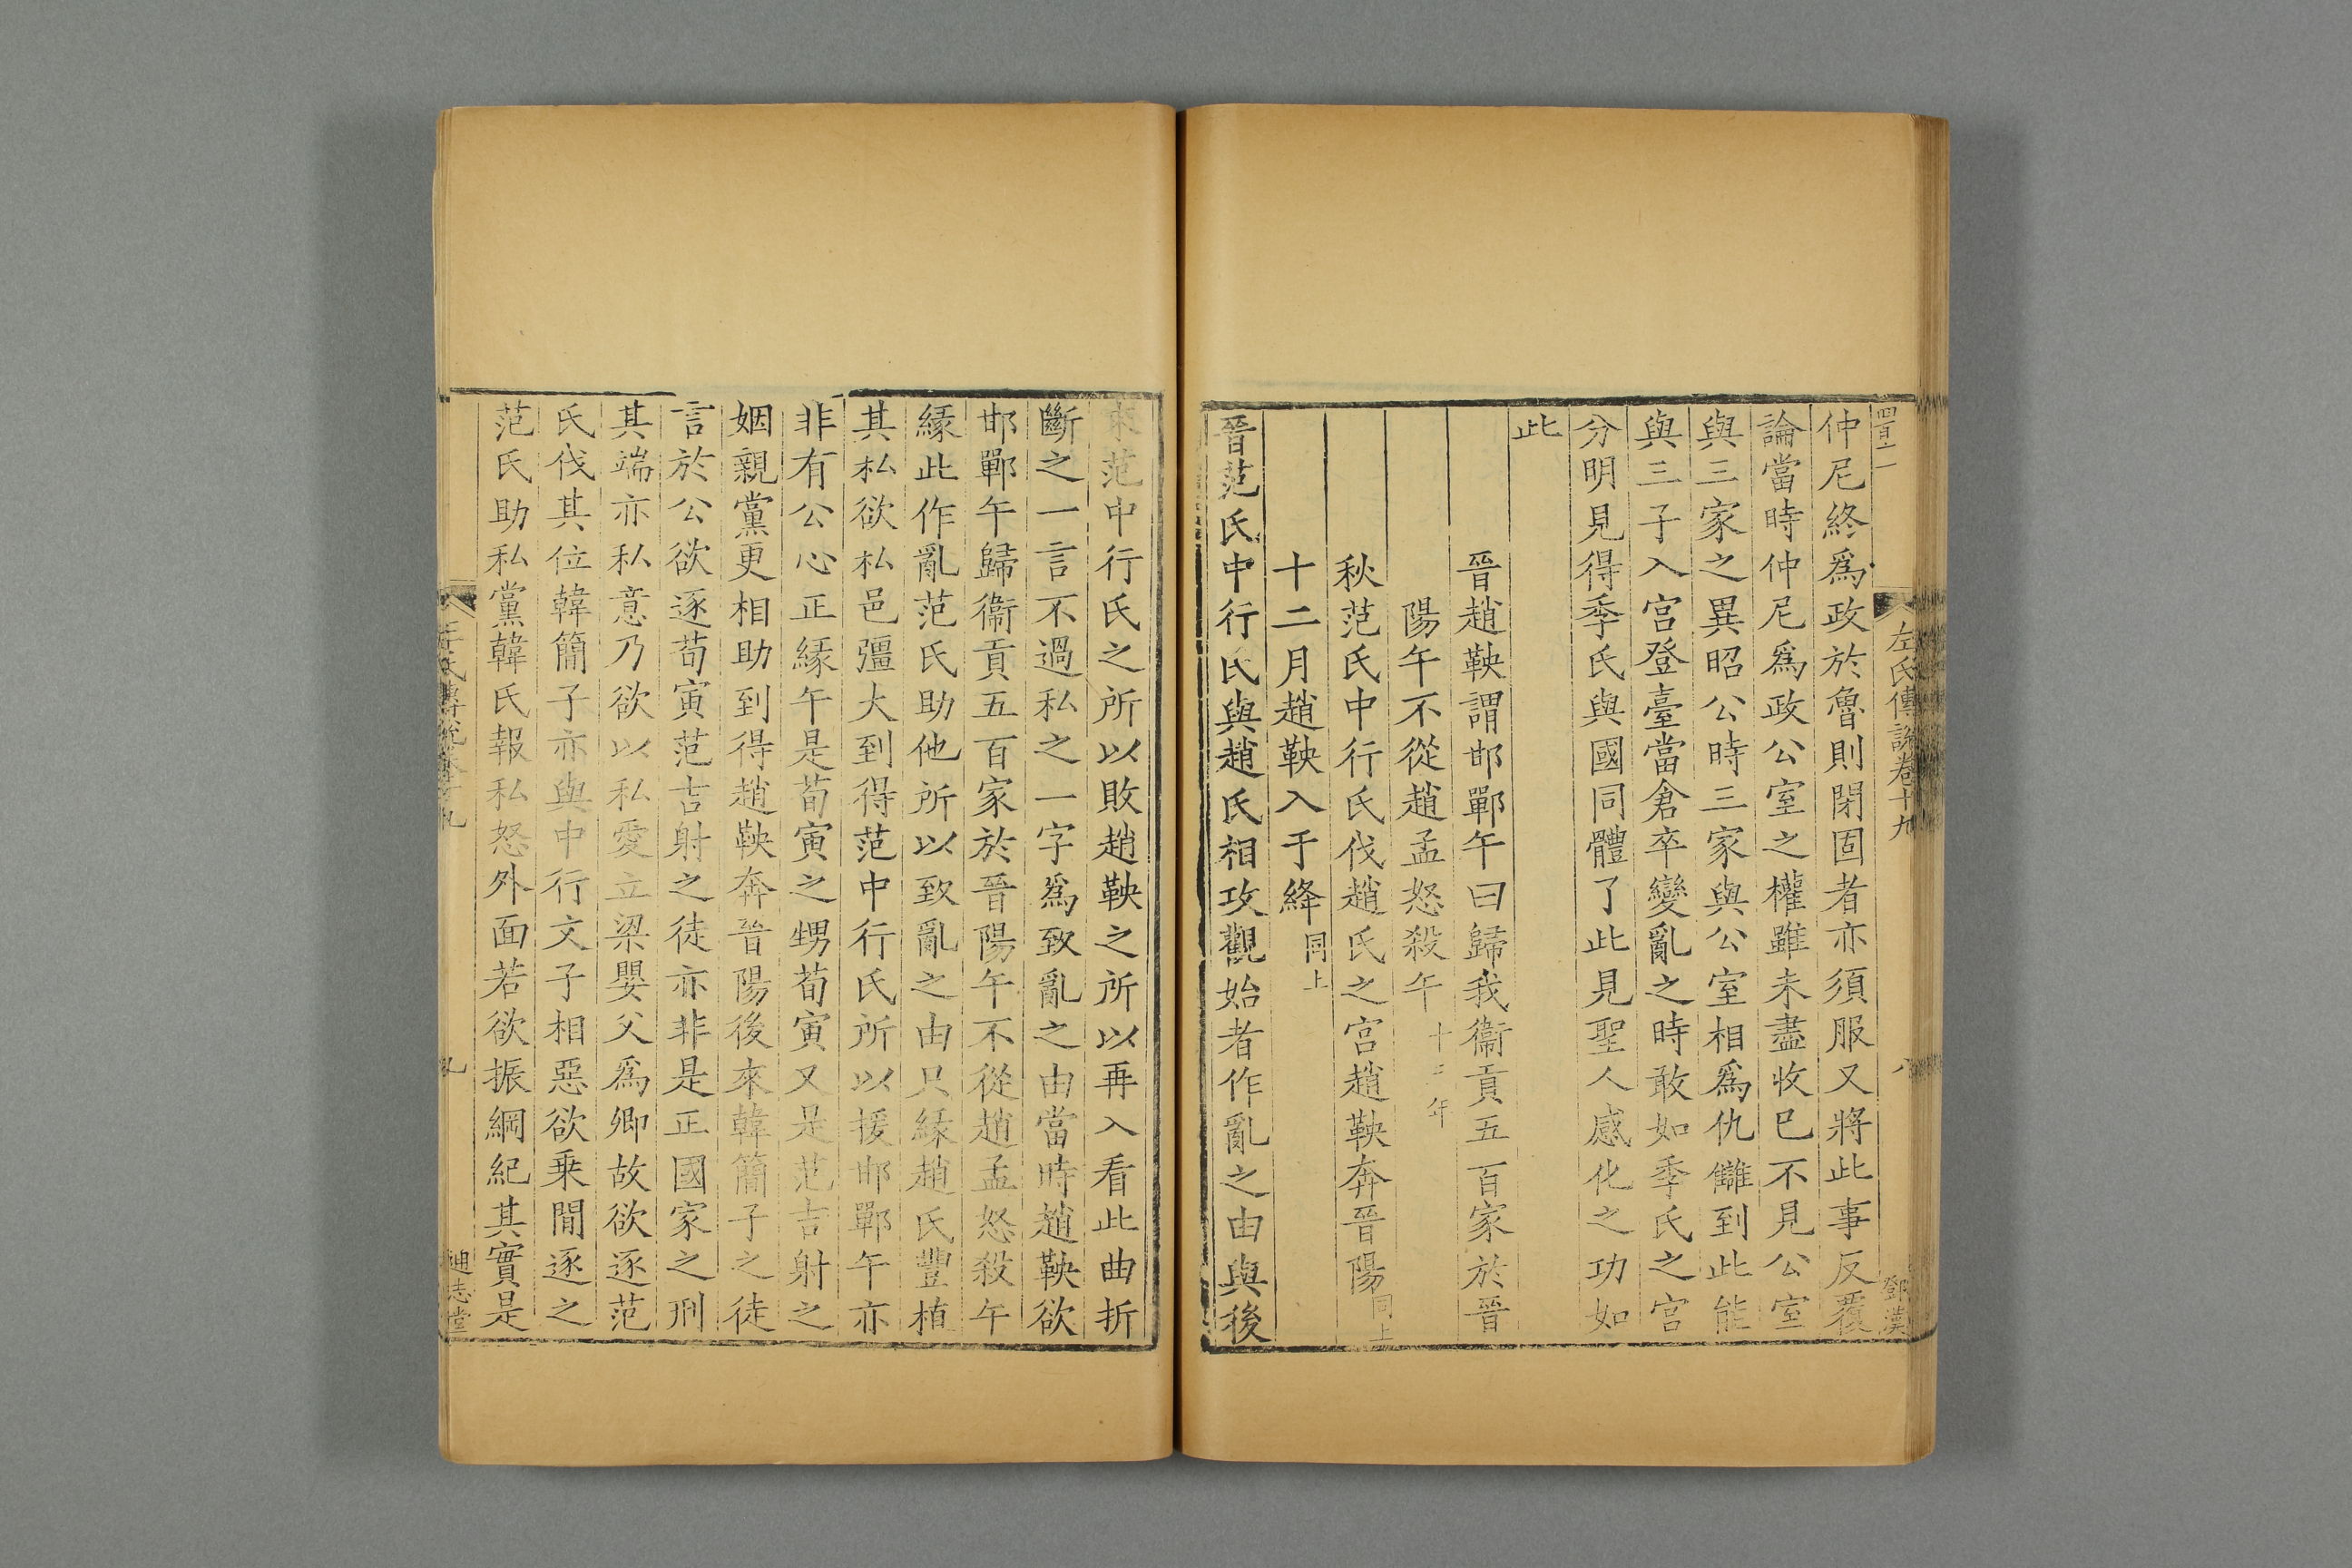 左氏傳說卷十九
八
鄧漢
仲尼終爲政於魯則閉固者亦須服又將此事反覆
論當時仲尼爲政公室之權雖未盡收巳不見公室
與三家之異昭公時三家與公室相爲仇讎到此能
與三子入宫登臺當倉卒變亂之時敢如季氏之宫
分明見得季氏與國同體了此見聖人感化之功如
此
晉趙鞅謂邯鄲午曰歸我衞貢五百家於晉
陽午不從趙孟怒殺午十二年
秋范氏中行氏伐趙氏之宫趙鞅奔晉陽同上
十二月趙鞅入于絳同上
晉范氏中行氏與趙氏相攻觀始者作亂之由與後
來范中行氏之所以敗趙鞅之所以再入看此曲折
斷之一言不過私之一字爲致亂之由當時趙鞅欲
邯鄲午歸衞貢五百家於晉陽午不從趙孟怒殺午
緣此作亂范氏助他所以致亂之由只緣趙氏豐植
其私欲私邑彊大到得范中行氏所以援邯鄲午亦
非有公心正緣午是荀寅之甥荀寅又是范吉射之
姻親黨更相助到得趙鞅奔晉陽後來韓簡子之徒
言於公欲逐荀寅范吉射之徒亦非是正國家之刑
其端亦私意乃欲以私愛立梁嬰父爲卿故欲逐范
氏伐其位韓簡子亦與中行文子相惡欲乗閒逐之
范氏助私黨韓氏報私怒外面若欲振綱紀其實是
左氏傳說卷十九
九
通志堂